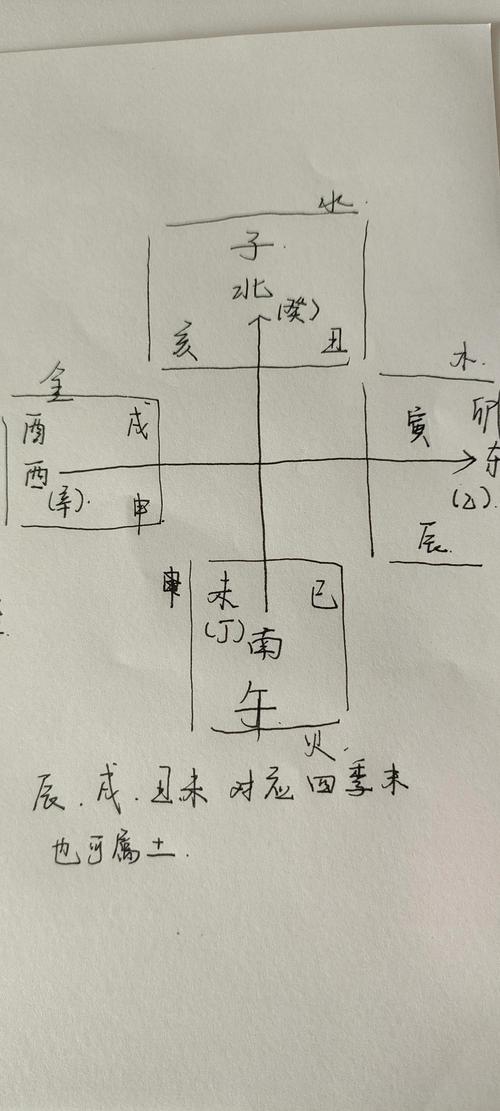 水.
子.
北
(癸)
亥 丑
金 木.
酉 戌 寅 卯
西 东
(辛). 申 (乙).
辰.
未 巳
(丁) 南
午
火.
辰.戌.丑未 对应四季末
也可属土.